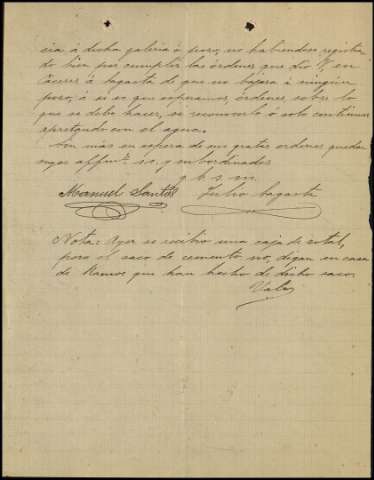 cia á dicha galeria ó pozo, no habiendose registra
do bien por cumplir las órdenes que dió V. en
Cáceres á Lagarta de que no bajara á ningún
pozo, ó si es que esperamos, órdenes, sobre lo
que se debe hacer, si reconocerlo ó solo continuar
apretando con el agua.
Son más en espera de sus gratas ordenes quedan
suyos affmos. s.s. y subordinados
q. b. s. m.
Manuel Santos Julio Lagarta
Nota: Ayer se recibio una caja de zotal,
pero el saco de cemento no, digan en casa
de Ramos que han hecho de dicho saco.
Vale